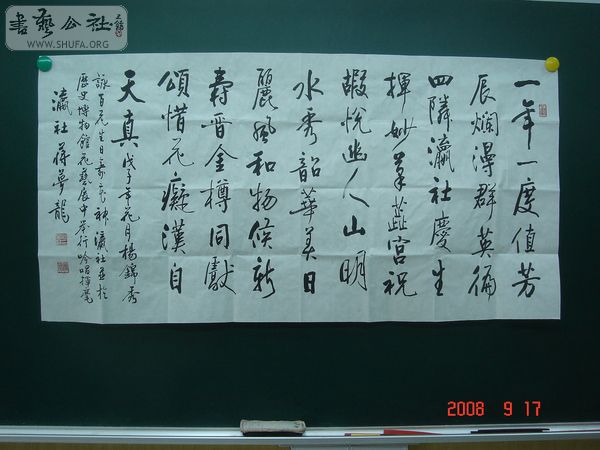 一年一度值芳
辰爛漫群英徧
四隣瀛社慶生
揮妙筆蕋宮祝
嘏悅幽人山明
水秀韶華美日
麗風和物候新
壽晉金樽同獻
頌惜花癡漢自
天真 戊子年花月楊錦秀
詠百花生日壽花神瀛社並於
歷史博物館花藝展中舉行吟唱揮毫
瀛社蔣夢龍
書藝公社
WWW.SHUFA.ORG
2008 9 17